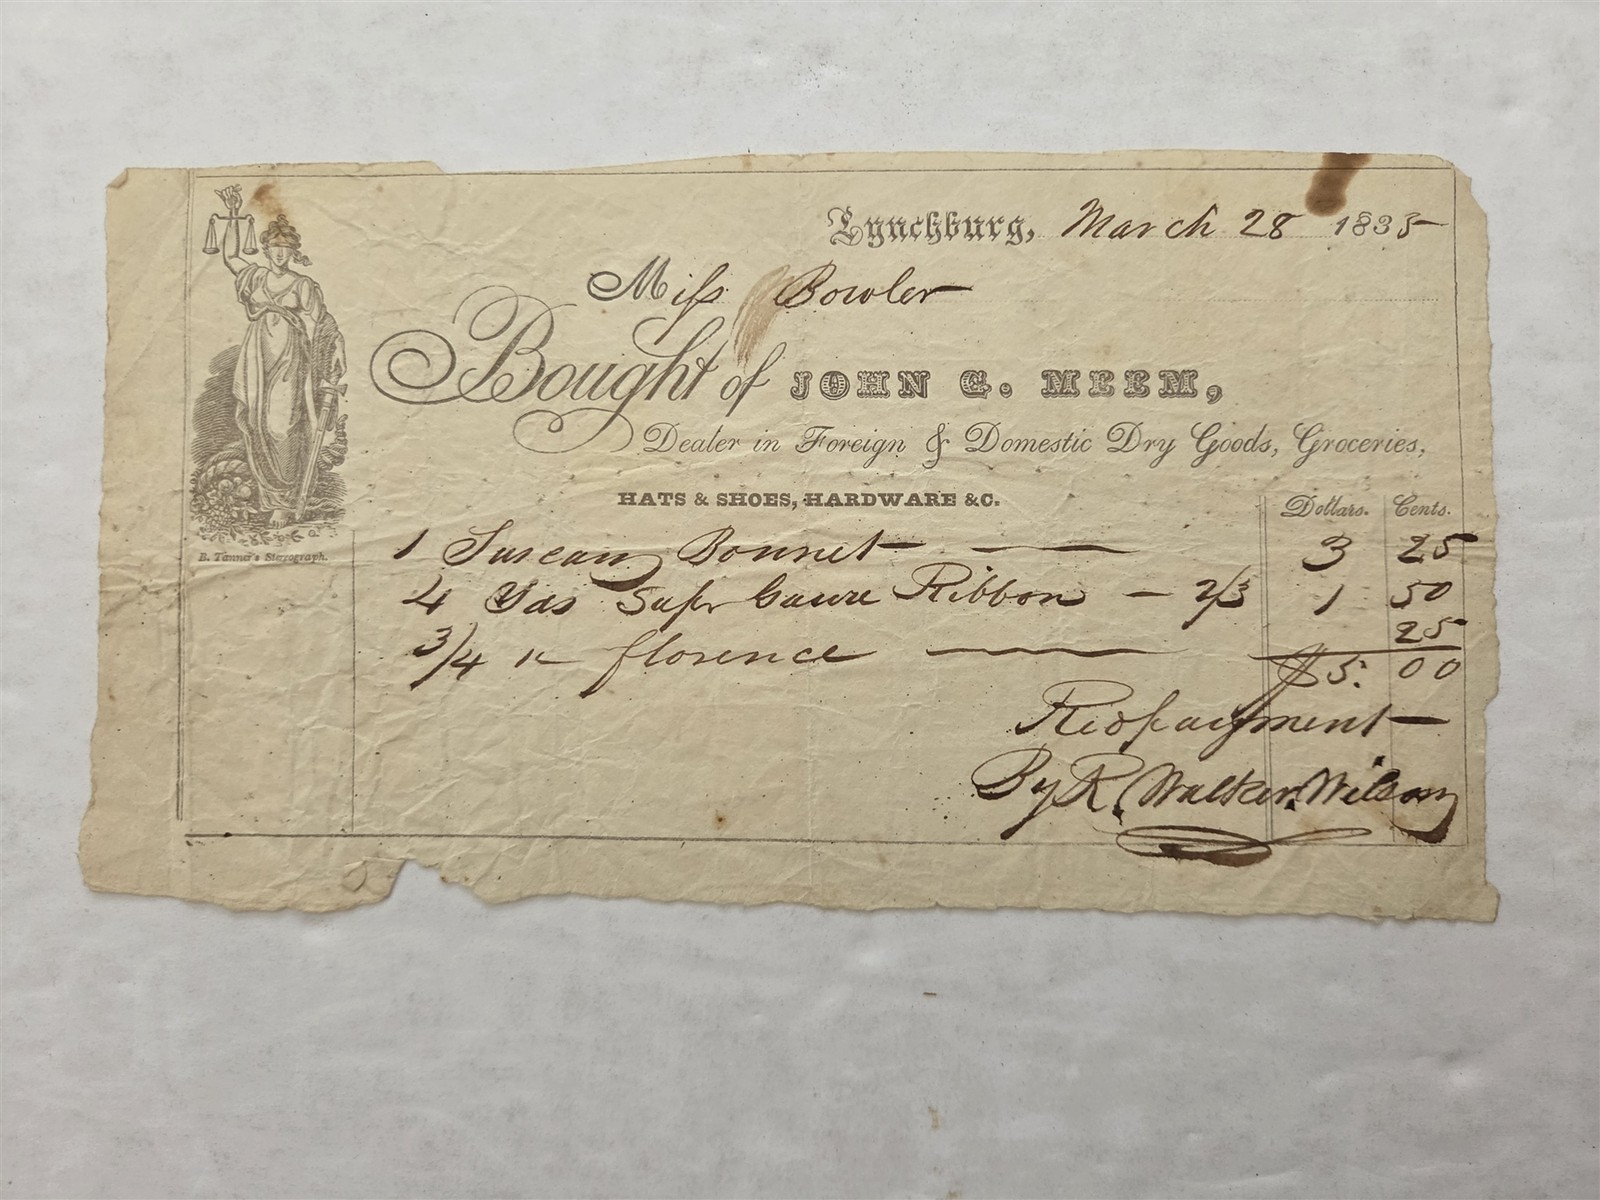 Lynchburg, March 28 1835
Miſs Bowler
Bought of JOHN G. MEEM,
Dealer in Foreign & Domestic Dry Goods, Groceries,
HATS & SHOES, HARDWARE &C.
Dollars. Cents.
B. Tanner's Sterograph.
1 Tuscan Bonnet 3 25
4 Yds Supr Gauze Ribbon 2/3 1 50
3/4 " florence 25
$5. 00
Recd payment
By R. Walker. Wilson